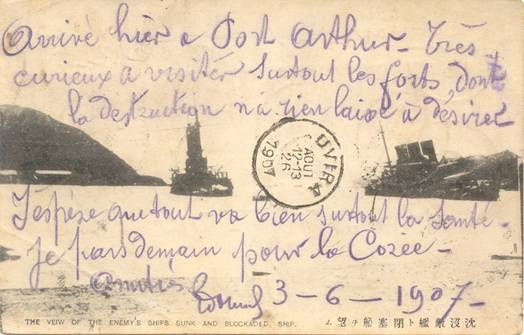 Arrivé hier a Port Arthur - très
curieux à visiter surtout les forts, dont
la destruction n'a rien laissé à désirer
OVERA
AOUT
12-13
26
1907
J'espère que tout va bien surtout la santé -
je pars demain pour la Corée -
Amitiés
3-6-1907-
THE VEIW OF THE ENEMY'S SHIPS SUNK AND BLOCKADED, SHIP.
沈沒敵艦ト閉塞船ヲ望ム